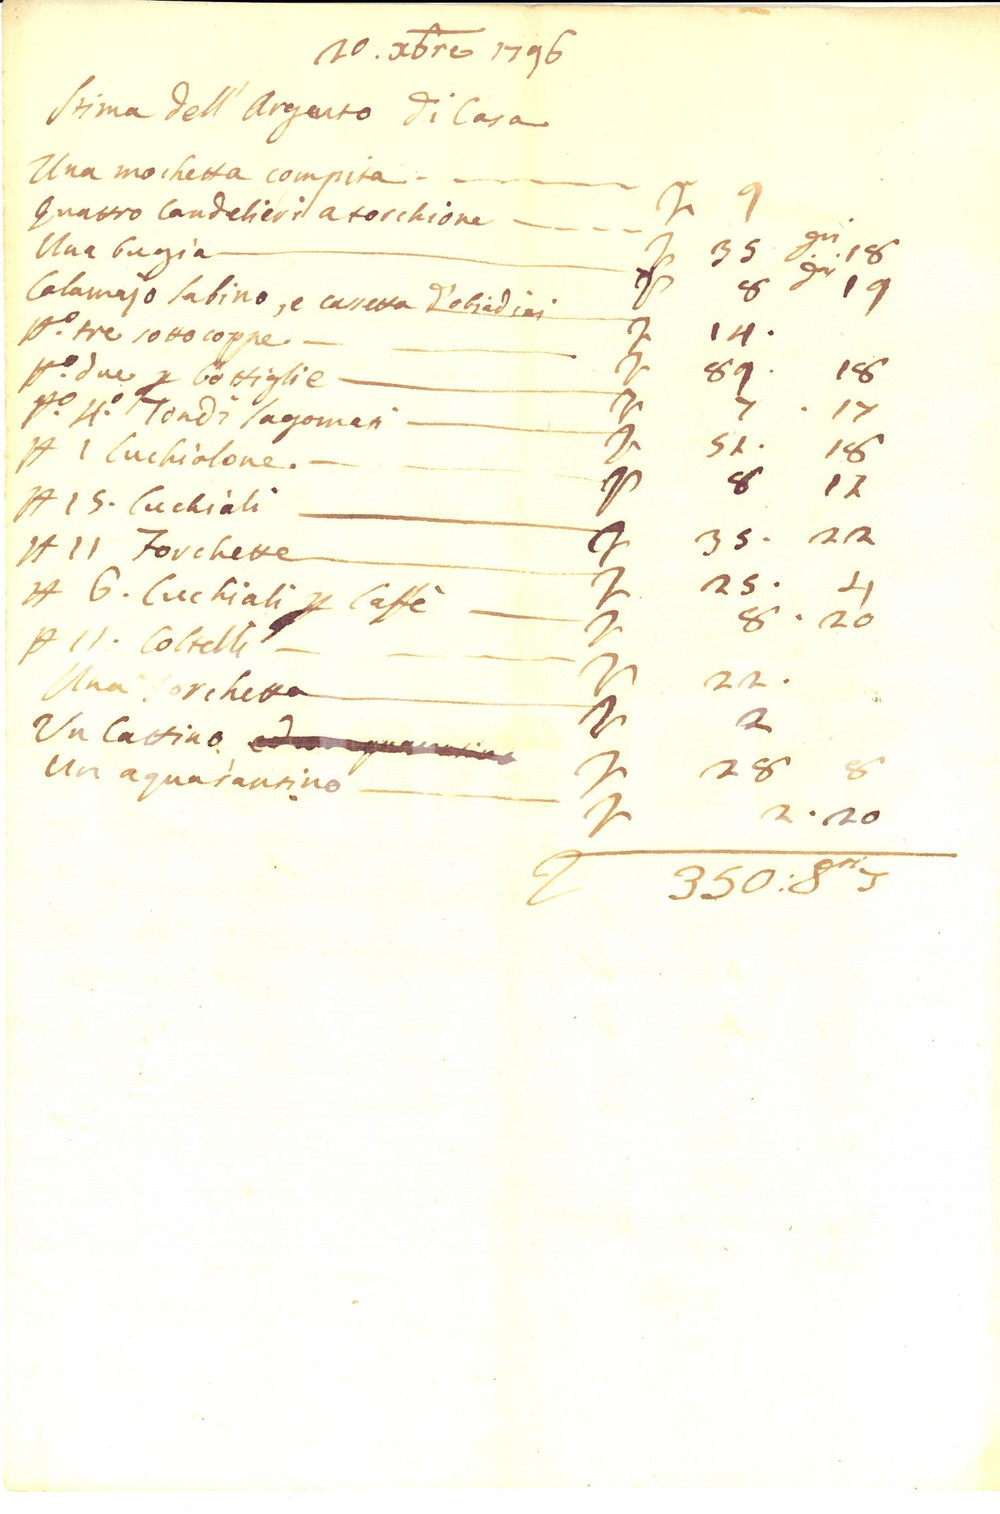 20. xbre 1796
Stima dell'Argento di Casa
Una mochetta compita - 9
Quattro Candelieri a torchione 35 dri 18
Una bugia 8 dri 19
Calamajo sabino, e casetta d'obiadini 14.
No. tre sottocoppe. 89. 18
No. due p bottiglie 7. 17
No. 4o. Tondi sagomati 51. 18
N 1 Cuchialone. 8 12
N 15. Cuchiali 35. 22
N 11 Forchette 25. 4
N 6. Cucchiali p Caffè 8. 20
N 11. Coltelli 22.
Una forchetta 2
Un Cattino 28 8
Un aquarantino 2. 20
350:8ri 5